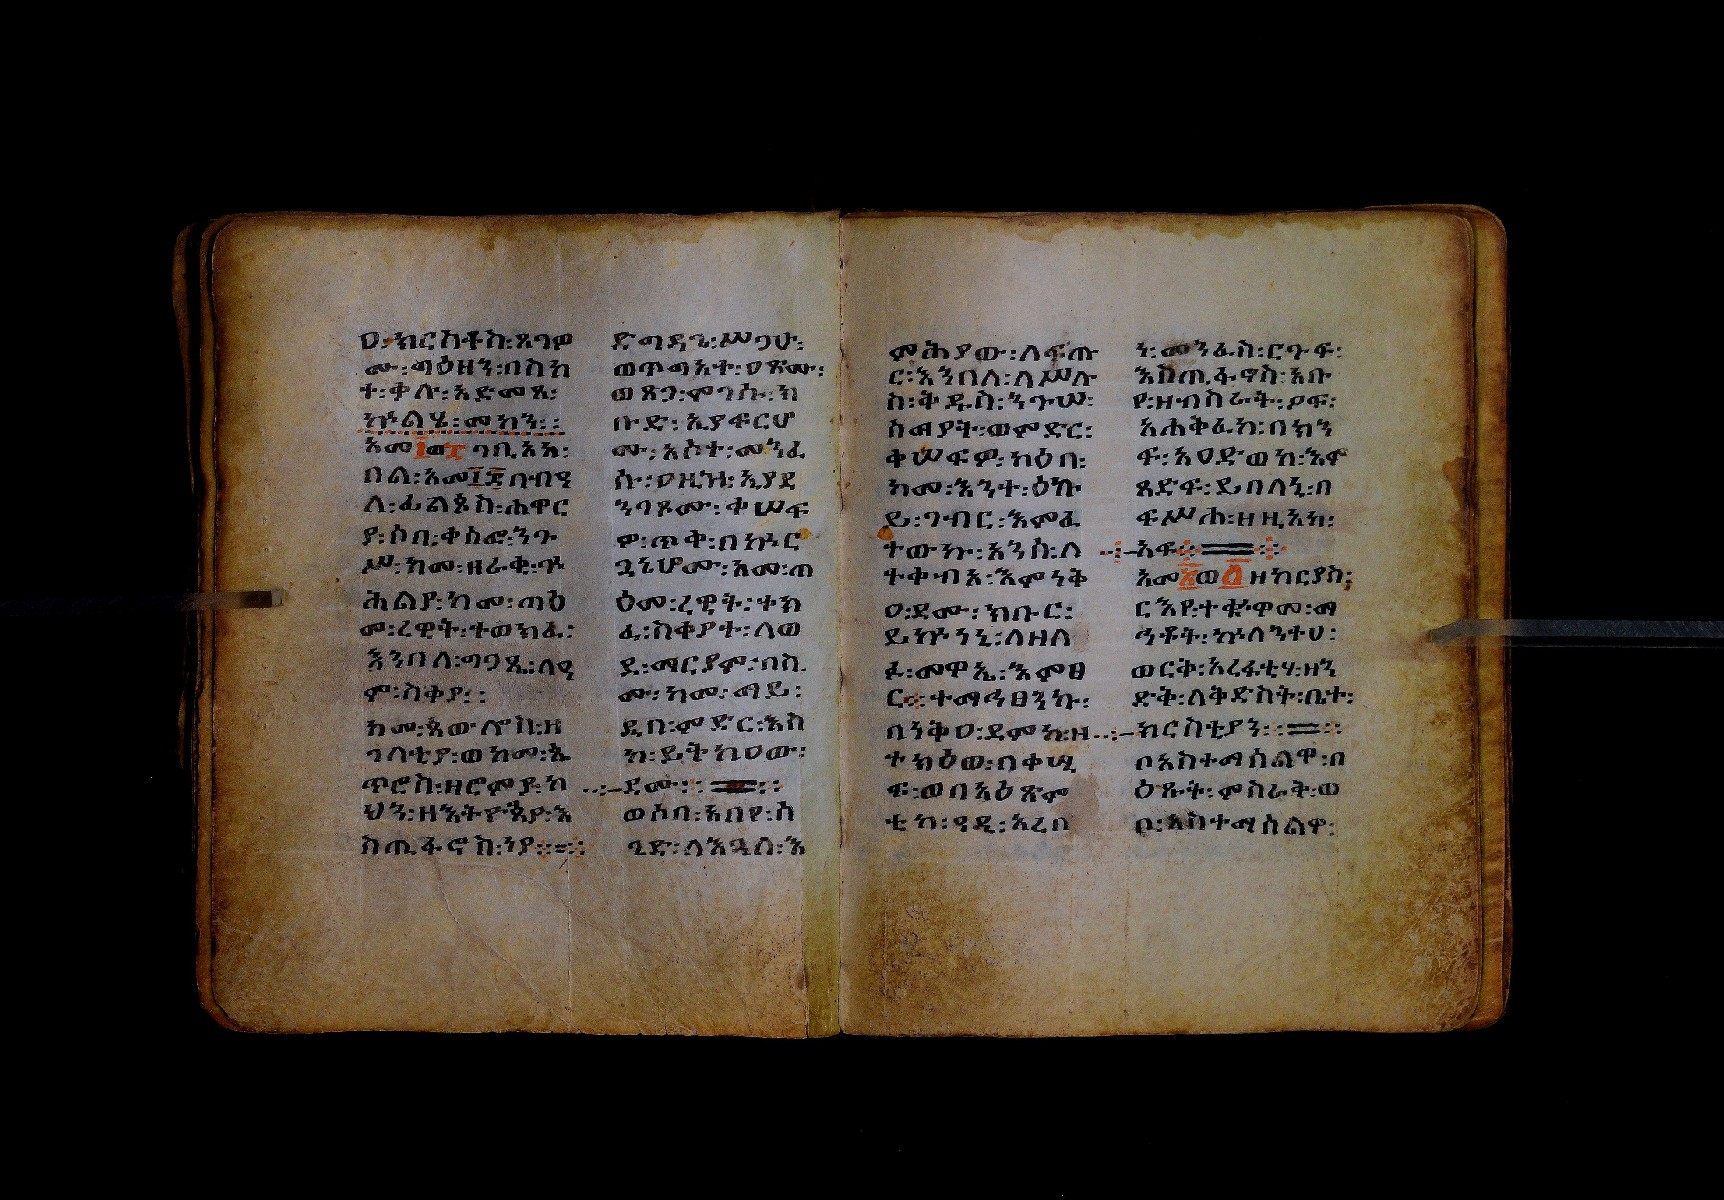 ዐ፡ክርስቶስ፡ጸጋዎ
ሙ፡ጣዕዘኝ፡በስከ
ት፡ቀሉ፡አድመጸ፡
ኵልሄ፡መካን፡፡
አመ፲ወ፫ ጣቢአአ፡
በል፡አመ፲፭በብዒ
ለ፡ፊልጶስ፡ሐዋር
ያ፡ሶበ፡ቀሰፎ፡ንጉ
ሥ፡ከመ፡ዘራቂ፡ጓ
ሕልያ፡ከመ፡ጣዕ
መ፡ረዊት፡ተወክፈ፡
እንበለ፡ግጋጼ፡ለዒ
ም፡ስቀያ፡፡
ከመ፡ጳውሎስ፡ዘ
ገላቲያ፡ወከመ፡ጴ
ጥሮስ፡ዘሮምያ፡ካ
ህን፡ዘኢትዮጵያ፡እ
ስጢፋኖስ፡ነያ፡፡=፡፡
ድግዳኔ፡ሥጋሁ፡
ወጥጣአተ፡ዐጽሙ፡
ወጸጋ፡ምገሱ፡ክ
ቡድ፡ኢያፍርሆ
ሙ፡አስተ፡መንፈ
ሱ፡ዐዚዝ፡ኢያደ
ንገጾሙ፡ቀሠፍ
ዎ፡ጥቀ፡በኵር
ጓኔሆሙ፡አመ፡ጠ
ዕመ፡ረዊት፡ተክ
ፈ፡ስቀያተ፡ለወ
ደ፡ማርያም፡በስ
ሙ፡ከመ፡ማይ፡
ዲበ፡ምድር፡እስ
ከ፡ይትከዐው፡
ደሙ፡፡=፡፡
ወሶበ፡አበየ፡ሰ
ጊድ፡ለእጓለ፡እ
ምሕያው፡ለፍጡ
ር፡እንበለ፡ለሥሉ
ስ፡ቅዱስ፡ንጉሠ፡
ሰማያት፡ወምድር፡
ቀሠፍዎ፡ካዕበ፡
ከመ፡እንተ፡ዕኩ
ይ፡ገብር፡እምፈ
ተውኩ፡አንሰ፡ለ
ተቀብአ፡እምነቅ
ዐ፡ደሙ፡ክቡር፡
ይኵነኒ፡ለዘለ
ፈ፡መዋኢ፡እምፀ
ር፡ተማዓፀንኩ፡
በነቅዐ፡ደምከ፡ዘ
ተክዕወ፡በቀሢ
ፍ፡ወበአዕጽም
ቲከ፡ዓዲ፡አረበ
ነ፡መንፈስ፡ርጉፍ፡
እስጢፋኖስ፡አቡ
የ፡ዘብስራት፡ዐፍ፡
አሐቅፈከ፡በክን
ፍ፡አዐድወከ፡እም
ጸድፍ፡ይበለኒ፡በ
ፍሥሐ፡ዘዚአከ፡
አፍ፡፡=፡፡
አመ፩ወ፬ዘከርያስ፡
ርእየ፡ተቋዋመ፡ማ
ኅቶት፡ኵለንተሀ፡
ወርቅ፡አረፋቲሃ፡ዘን
ድቅ፡ለቅድስት፡ቤተ፡
ክርስቲያን፡፡=፡፡
ቦአስተማሰልዋ፡በ
ዕጹት፡ምስራቅ፡ወ
ቦ፡አስተማሰልዋ፡